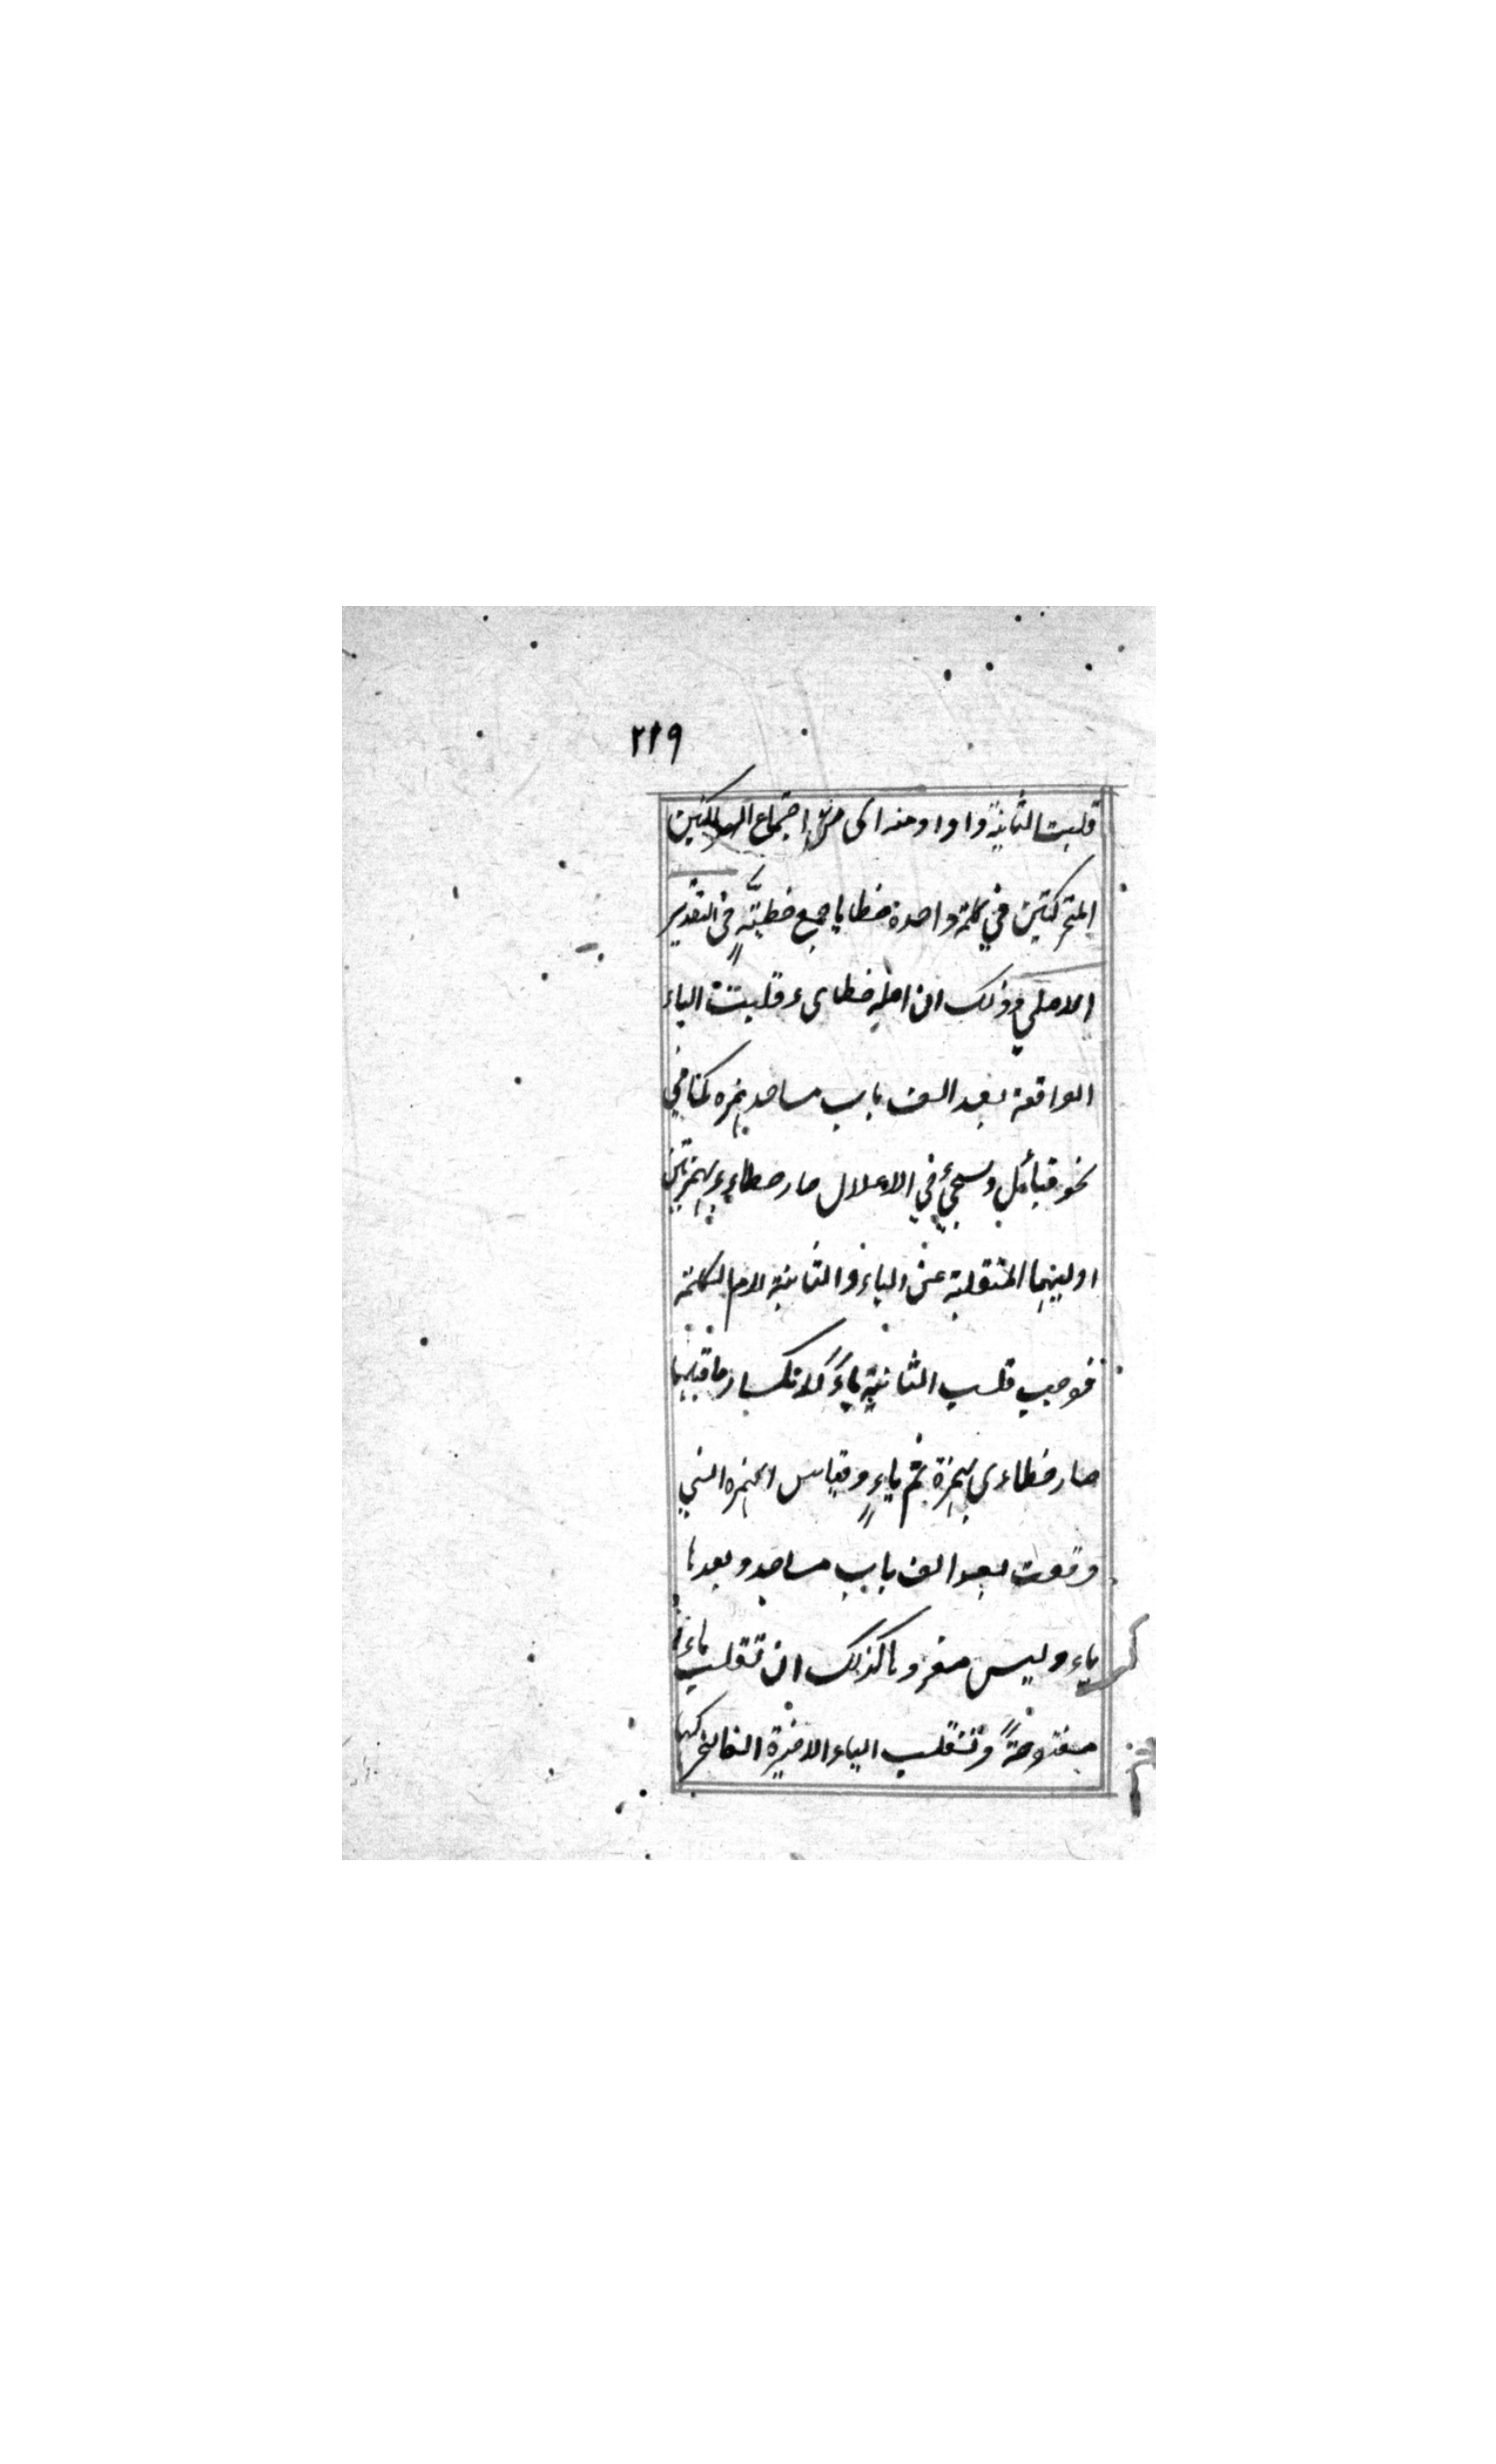 ٢١٩
قلبت الثانية واوا ومنه اى من اجتماع
المتحركتين في كلمة واحدة خطايا جمع خطيئة في التقدير
الاصلي وذلك ان اصله خطاىء قلبت الياء
الواقعة بعد الف باب مساجد همزه كما في
نحو قبائل وسيجئ في الاعلال صار خطاءء بهمزتين
اوليهما المنقلبة عن الياء والثانية لام الكلمة
فوجب قلب الثانية ياء لانكسار ما قبلها
صار خطاءى بهمزة ثم ياء وقياس الهمزه التي
وقعت بعد الف باب مساجد وبعدها
ياء وليس مفردها كذلك ان تقلب ياء
مفتوحة وتنقلب الياء الاخيرة الفا لتحركها